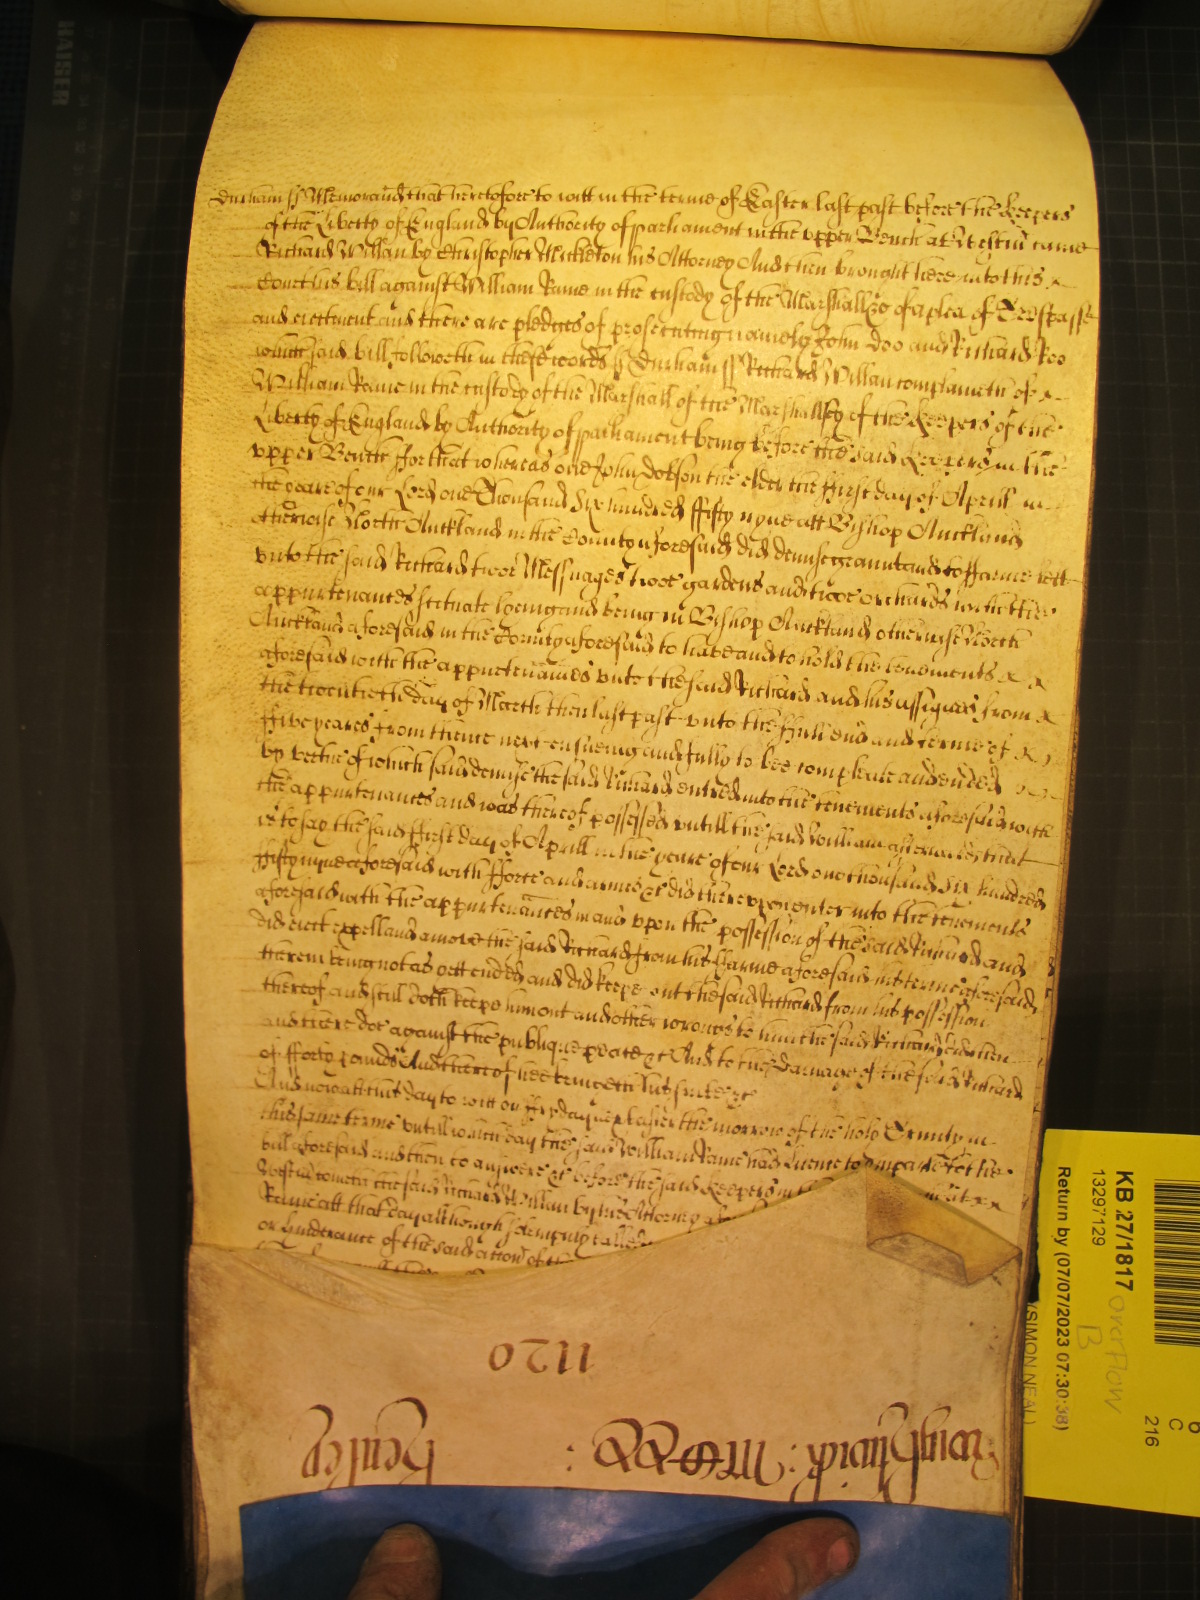 Durham ss Memorand that heretofore to witt in the terme of Easter last past before the keepers
of the Liberty of England by Authority of parliament in the upper Bench at Westm came
Richard Willan by Christopher Mickleton his Attorney And then brought here into this
Court his bill against William Rame in the custody of the Marshall &c of a plea of Trespasse
and eiectment and there are pledges of prosecuting namely John Doo and Richard Roo
which said bill followeth in these words ss Durham ss Richard Willan complaineth of
William Rame in the custody of the Marshall of the Marshallsey of the keepers of the
Liberty of England by Authority of parliament being before the said keepers in the
upper Bench ffor that whereas one John Dobson the elder the ffirst day of Aprill in
the yeare of our Lord one Thousand six hundred ffifty nyne att Bishop Auckland
otherwise North Auckland in the County aforesaid did demise graunt and to ffarme lett
unto the said Richard twoe Messuages twoe gardens and twoe orchards with the
appurtenances scituate lyeing and being in Bishop Auckland otherwise North
Auckland aforesaid in the County aforesaid to have and to hold the tenements
aforesaid with the appurtenances unto the said Richard and his assignes from
the twentieth day of March then last past unto the ffull end and terme of
ffive yeares from thence next ensueing and fully to bee compleate and ended
by vertue of which said demise the said Richard entred into the tenements aforesaid with
the appurtenances and was thereof possessed untill the said William afterwards that
is to say the said ffirst day of Aprill in the yeare of our Lord one thousand six hundred
ffifty nyne aforesaid with fforce and armes &c did thereupon enter into the tenements
aforesaid with the appurtenances in and upon the possession of the said Richard and
did eiect expell and amove the said Richard from his ffarme aforesaid his terme aforesaid
therein being not as yett ended and did keepe out the said Richard from his possession
thereof and still doth keepe him out and other wrongs to him the said Richard did then
and there doe against the publique peace &c And to the damage of the said Richard
of fforty pounds And thereof hee bringeth his suite &c
And now att this day to witt on ffryday next after the morrow of the holy Trinity in
this same terme untill which day the said William Rame had licence to imparle to the
bill aforesaid and then to answere &c before the said keepers in the
Westm cometh the said Richard Willan by his Attorney
Rame att that day although solempnly called
or hinderance of the said action of the
1120
Henley
KB 27/1817
13297129
Return by (07/07/2023 07:30:38)
(SIMON NEAL)
overflow
B
6
C
216
HAISER